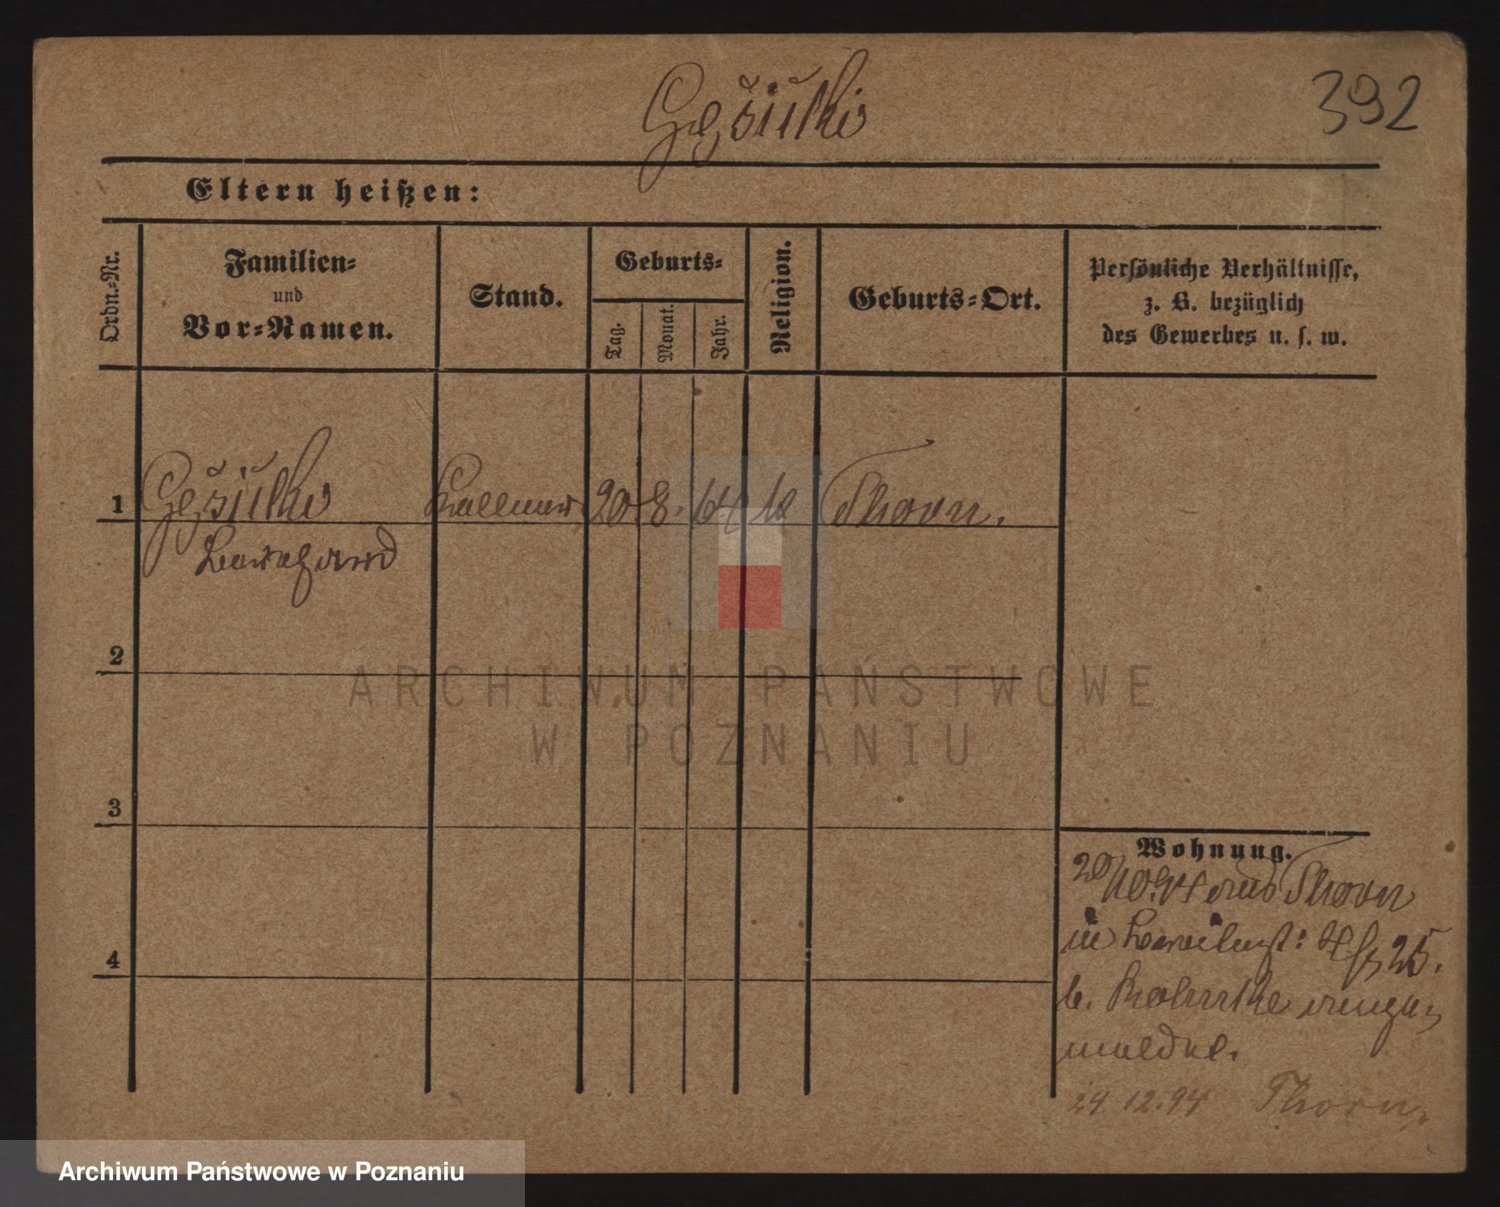 392
Eltern heißen:
Ordn.-Nr.
Familien-
und
Vor-Namen.
Stand.
Geburts-
Tag.
Monat.
Jahr.
Religion.
Geburts-Ort.
Persönliche Verhältnisse,
z. B. bezüglich
des Gewerbes u. s. w.
1
Kellner
20
8.
64
k
Thorn.
2
3
4
Wohnung.
20/10.94 aus Thorn
in
25.
b. angem
meldet.
24 12.94 Thorn.
ARCHIWUM PAŃSTWOWE
W POZNANIU
Archiwum Państwowe w Poznaniu